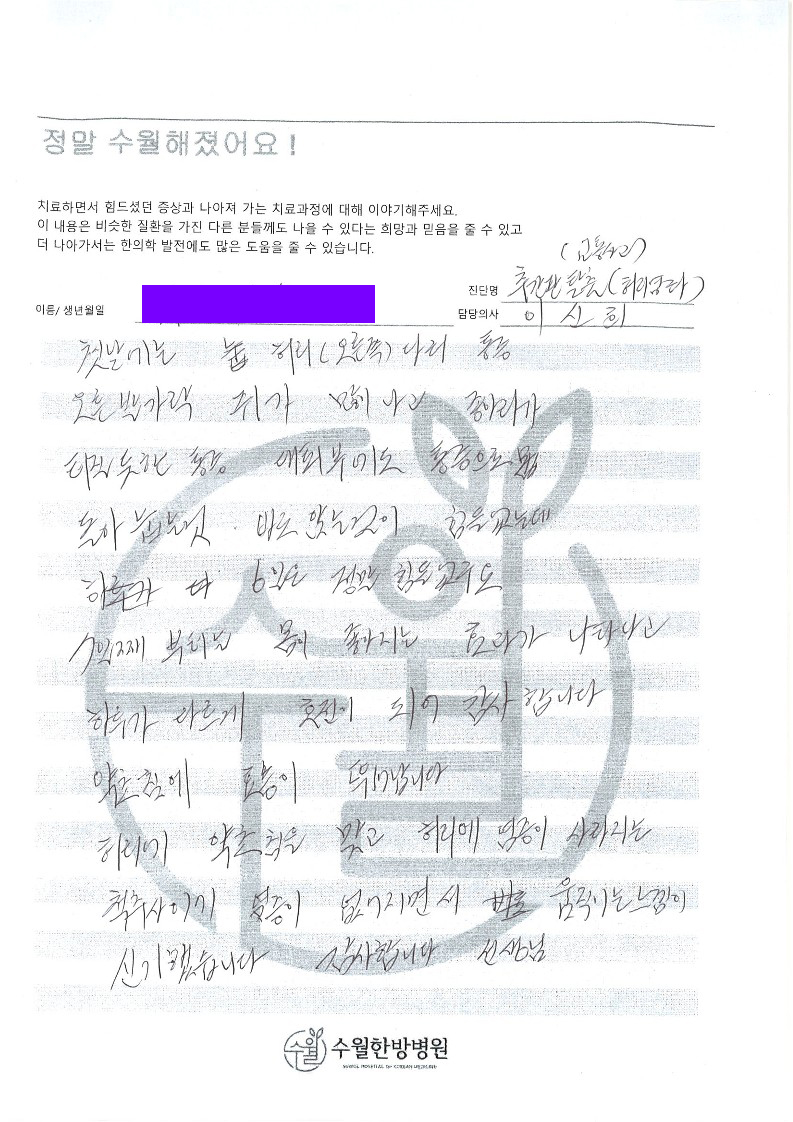 정말 수월해졌어요!
치료하면서 힘드셨던 증상과 나아져 가는 치료과정에 대해 이야기해주세요.
이 내용은 비슷한 질환을 가진 다른 분들께도 나을 수 있다는 희망과 믿음을 줄 수 있고
더 나아가서는 한의학 발전에도 많은 도움을 줄 수 있습니다.
(교통사고)
진단명 추간판탈출(허리염좌)
이름/ 생년월일
담당의사 이신희
첫날에는 허리(오른쪽)다리 통증
오른발가락 쥐가 많이 나고 종아리가
터질듯한 통증 통증으로
돌아 눕는것 바로 앉는것이 힘들었는데
하루가 6일은 정말 힘들었구요
7일째 부터는 몸이 좋아지는 효과가 나타나고
하루가 다르게 호전이 되어 감사합니다
약초침에 효능이 뛰어납니다
허리에 약초침을 맞고 허리에 염증이 사라지는
척추사이기 염증이 없어지면서 움직이는느낌이
신기했습니다 감사합니다 선생님
수월한방병원
SUWOL HOSPITAL OF KOREAN MEDICINE